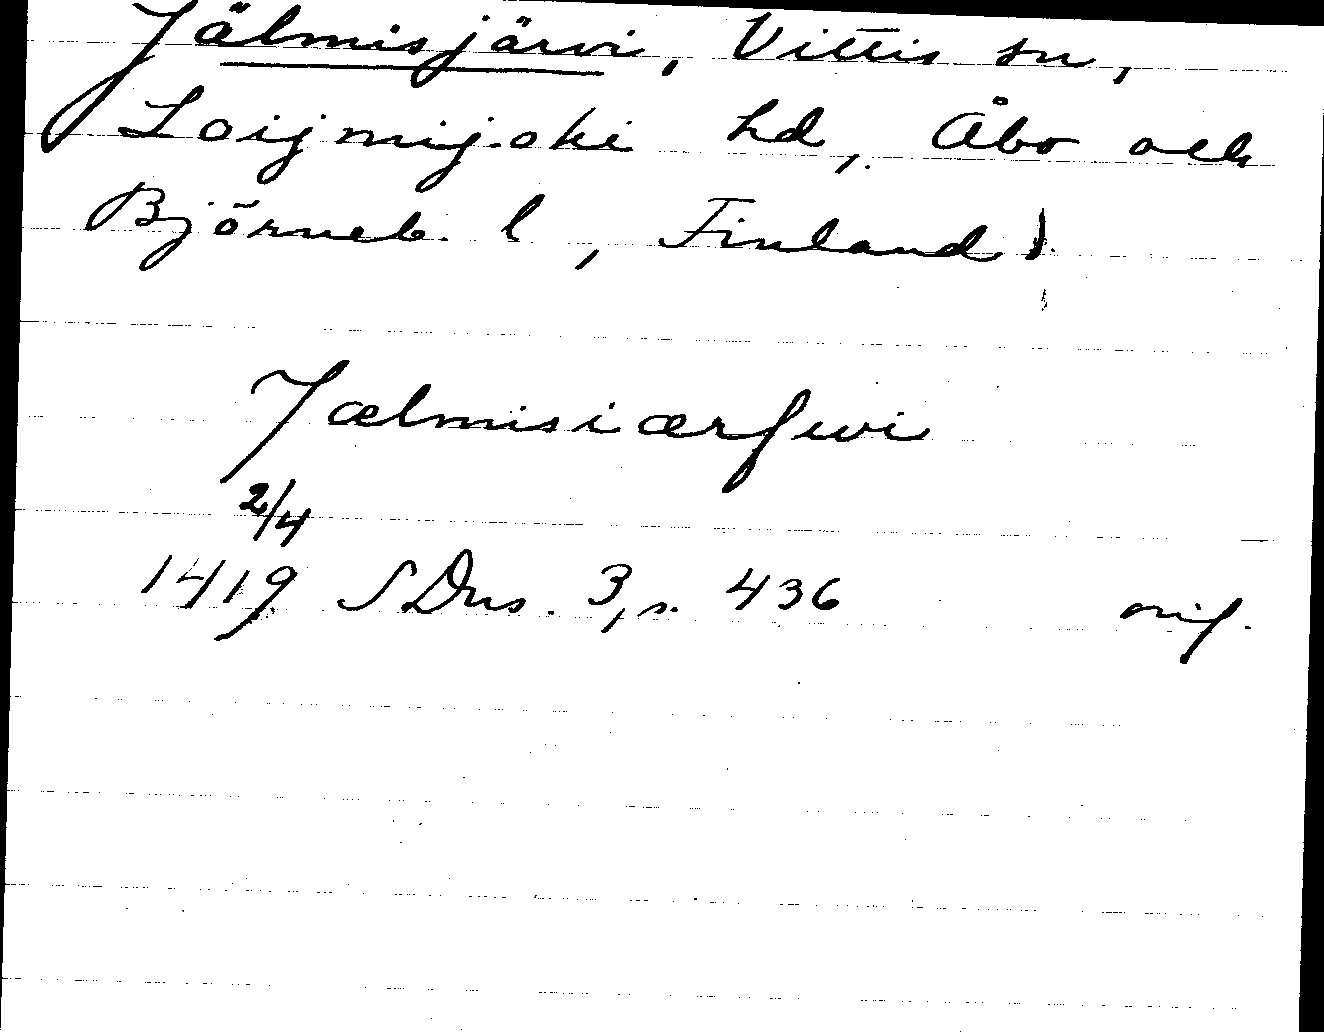 Jälmisjärvi, Vittis sn,
Loijmijoki hd, Åbo och
Björneb. l, Finland)
Jælmisiærfwi
2/4
1419 SDns. 3, s. 436 orig.